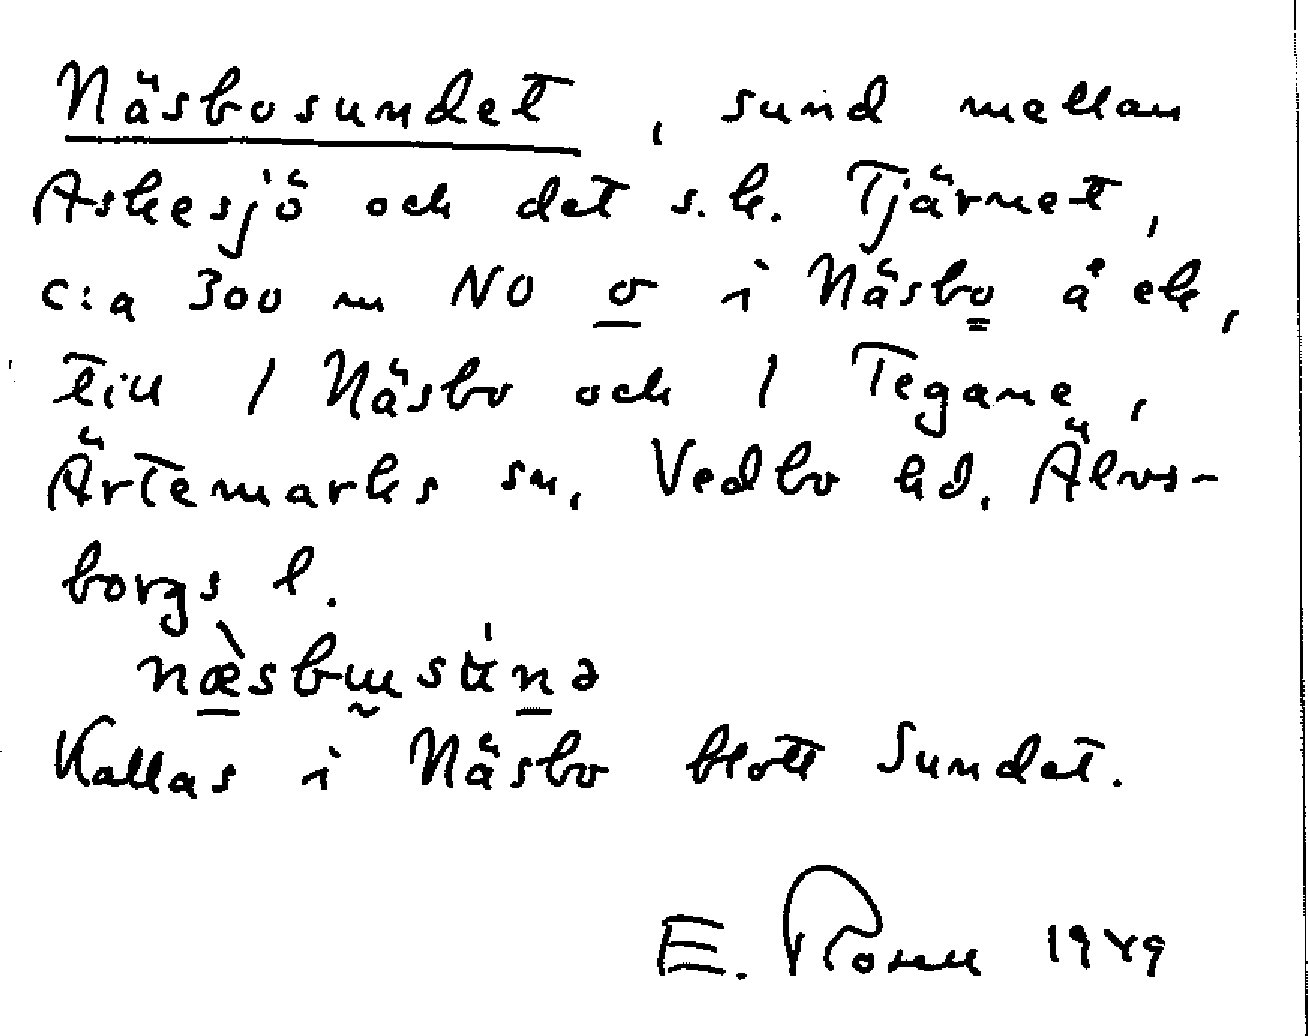 Näsbosundet, sund mellan
Askesjö och det s.k. Tjärnet,
c:a 300 m NO o i Näsbo å ek,
till 1 Näsbo och 1 Tegane,
Ärtemarks sn, Vedbo hd, Älvs-
borgs l.
næ̀sbɯsʉ́nə
Kallas i Näsbo blott Sundet.
E. 1949